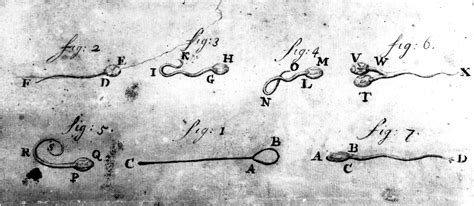 fig: 2 fig: 3 fig: 4 fig: 6.
E K H O M V W
F D I G L X
N T
fig: 5. fig: 1 fig: 7.
R S Q B A B
P C A C D